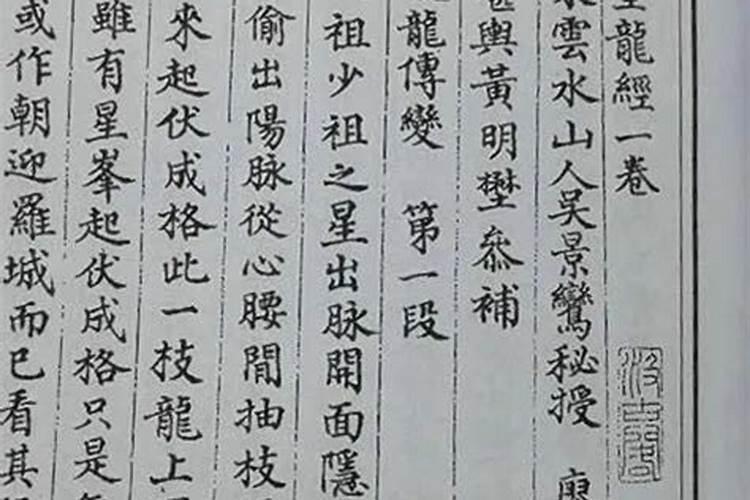 龍經一卷
雲水山人吴景鸞秘授
輿黃明壄叅補
龍傳變 第一段
祖少祖之星出脉開面隱
偷出陽脉從心腰間抽枝
來起伏成格此一枝龍上
雖有星峯起伏成格只是
或作朝迎羅城而已看其